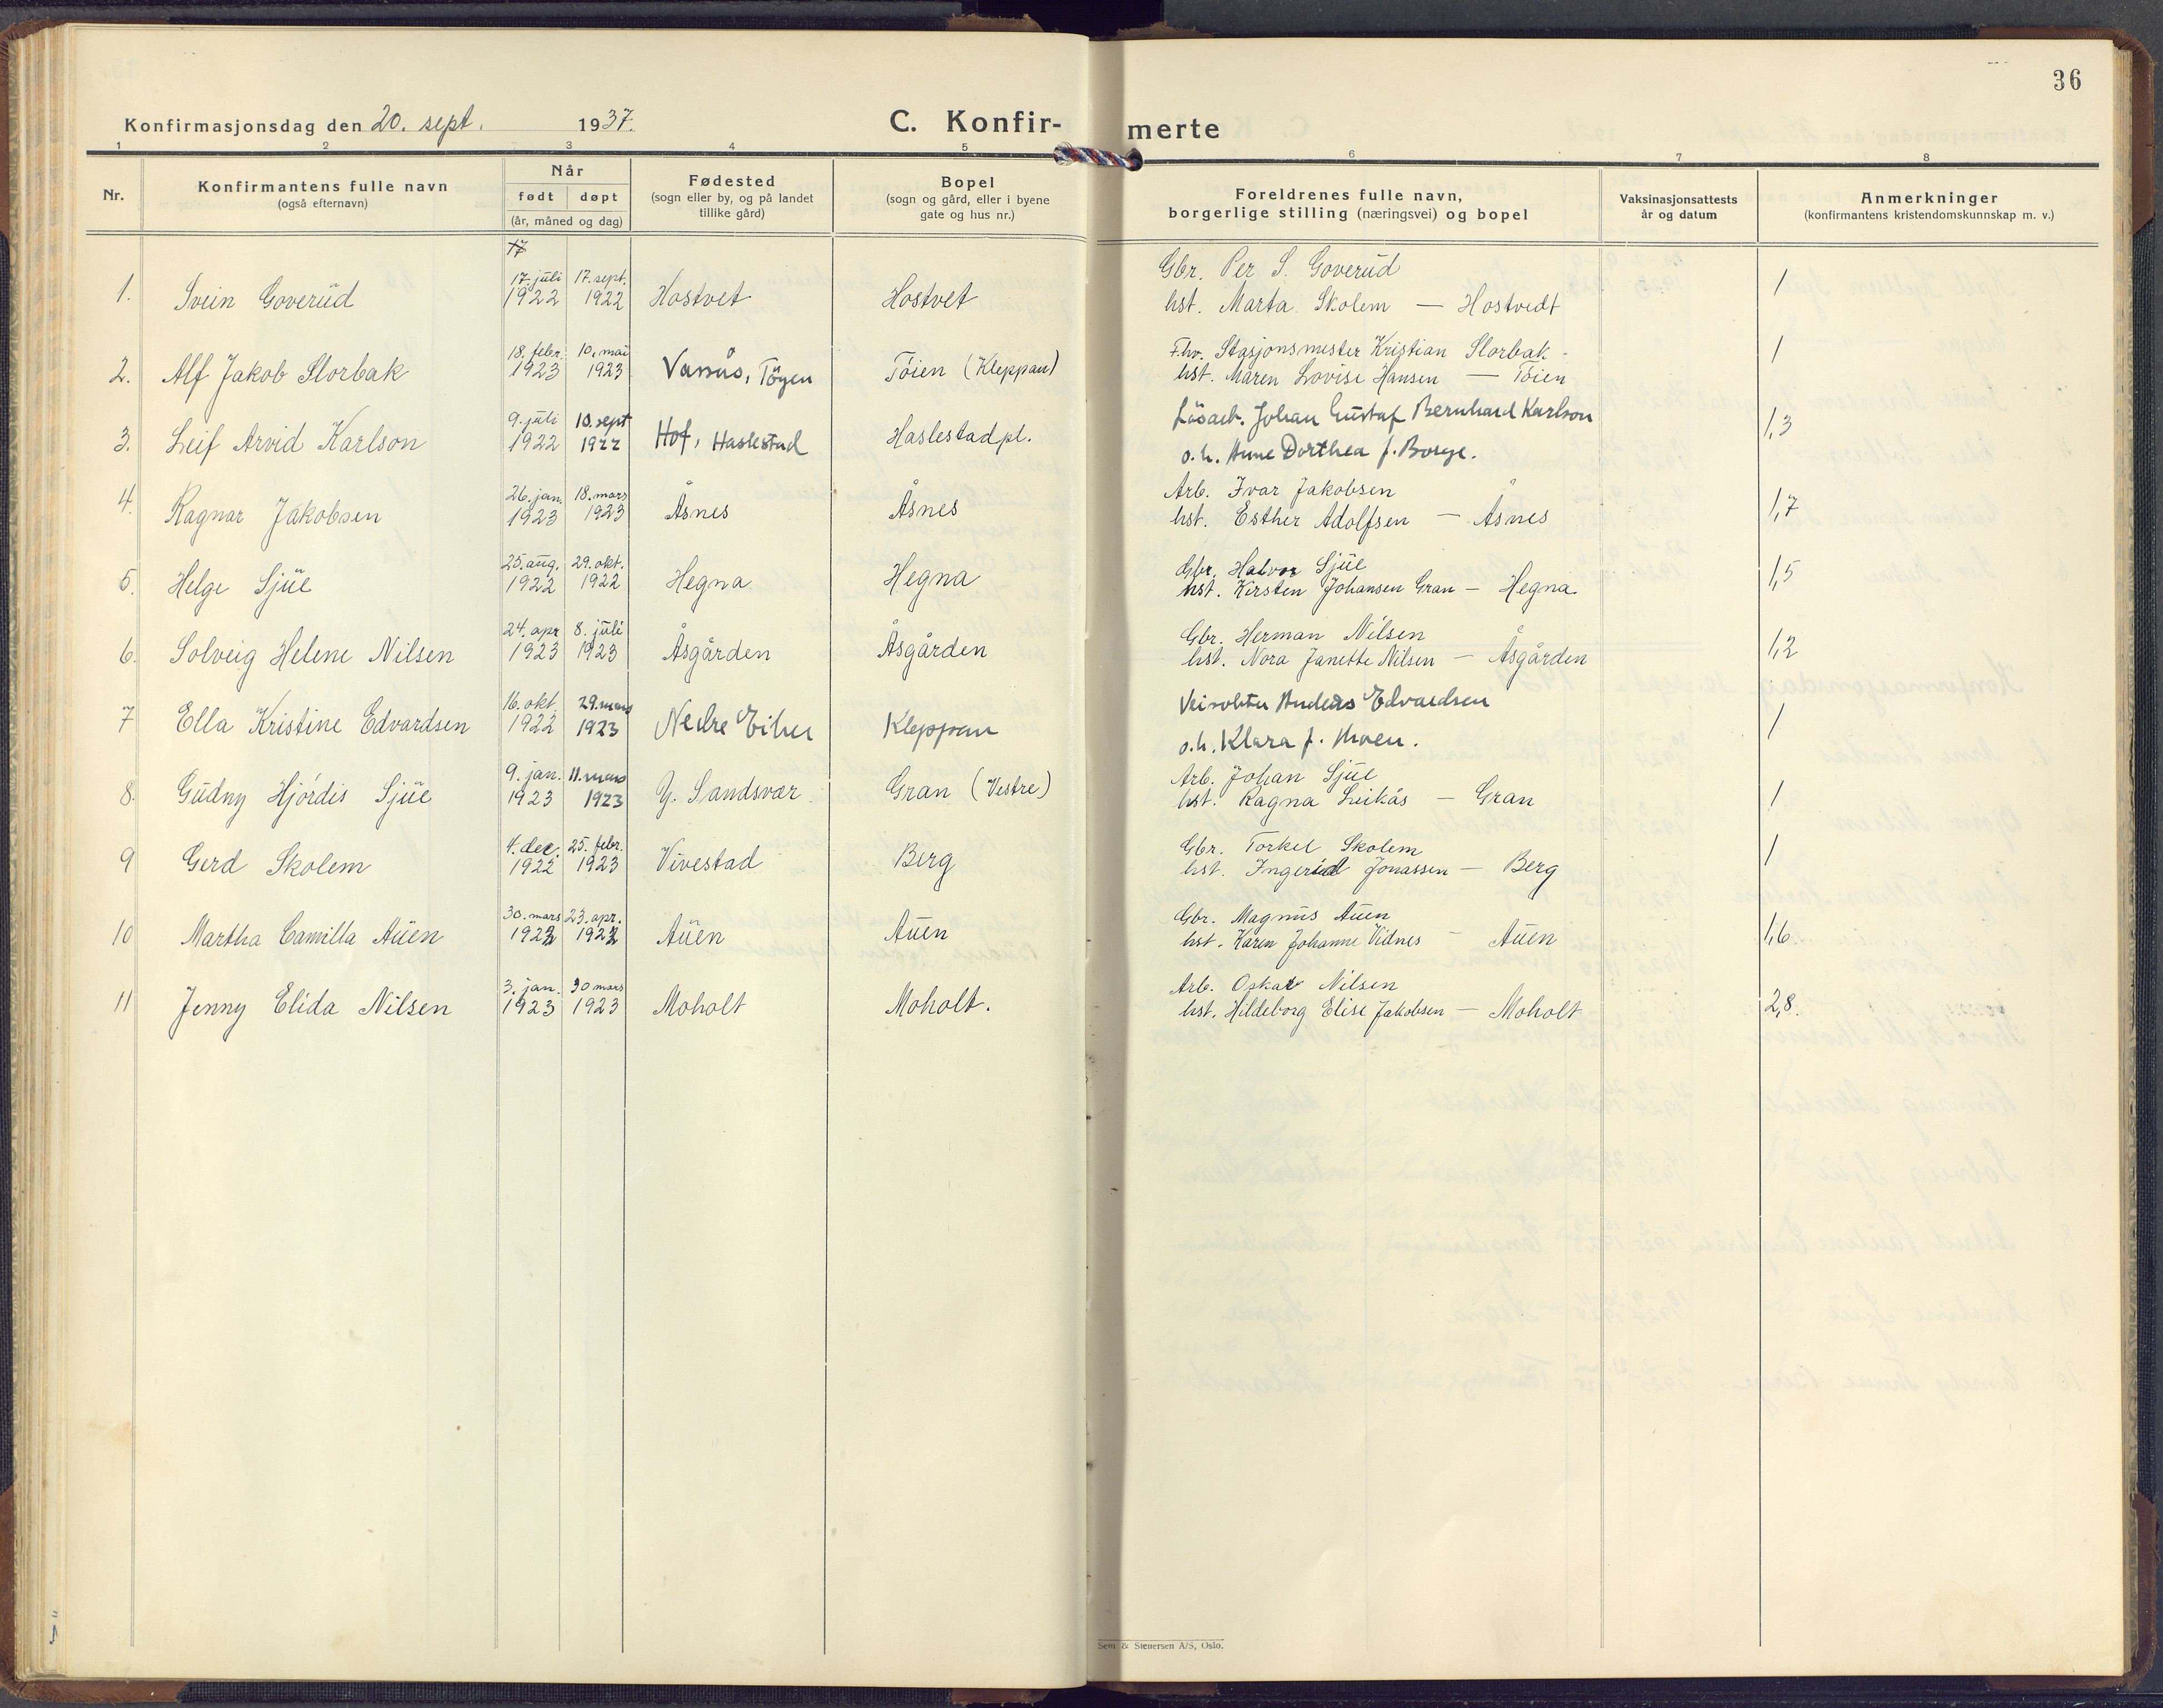 36
Konfirmasjonsdag den 20. sept. 1937.
C. Konfir-merte
1 2 3 4 5 6 7 8
Nr.
Konfirmantens fulle navn
(også efternavn)
Når
født døpt
(år, måned og dag)
Fødested
(sogn eller by, og på landet
tillike gård)
Bopel
(sogn og gård, eller i byene
gate og hus nr.)
Foreldrenes fulle navn,
borgerlige stilling (næringsvei) og bopel
Vaksinasjonsattests
år og datum
Anmerkninger
(konfirmantens kristendomskunnskap m. v.)
17
17. juli 17. sept. Gbr. Per S. Goverud
1. Svein Goverud 1922 1922 Hostvet Hostvet hst. Marta Skolem — Hostvedt 1
18. febr. 10. mai F.hv. Stasjonsmester Kristian Storbak - 1
2. Alf Jakob Storbak 1923 1923 Vassås, Töyen Töien (Kleppan) hst. Maren Lovise Hansen — Töien
9. juli 10. sept Lösarb. Johan Gustaf Bernhard Karlson
3. Leif Arvid Karlson 1922 1922 Hof, Haslestad Haslestad pl. o.h. Anne Dorthea f. Borge. 1,3
26. jan. 18. mars Arb. Ivar Jakobsen
4. Ragnar Jakobsen 1923 1923 Åsnes Åsnes hst. Esther Adolfsen — Åsnes 1,7
25. aug. 29. okt. Gbr. Halvor Sjue
5. Helge Sjue 1922 1922 Hegna Hegna hst. Kirsten Johansen Gran — Hegna. 1,5
24. apr 8. juli Gbr. Herman Nilsen
6. Solveig Helene Nilsen 1923 1923 Åsgården Åsgården hst. Nora Janette Nilsen — Åsgården 1,2
16. okt. 29. mars Veivokter Anders Edvardsen
7 Ella Kristine Edvardsen 1922 1923 Nedre Eiker Kleppan o.h. Klara f. Moen. 1
9. jan. 11. mars Arb. Johan Sjue
8. Gudny Hjördis Sjue 1923 1923 Y. Sandsvær Gran (Vestre) hst. Ragna Leikås — Gran 1
4. dec. 25. febr. Gbr. Torkel Skolem
9 Gerd Skolem 1922 1923 Vivestad Berg hst. Ingerid Jonassen — Berg 1
30. mars 23. apr. Gbr. Magnus Auen
10 Martha Camilla Auen 1922 1922 Auen Auen hst. Karen Johanne Vidnes — Auen 1,6
3. jan. 30 mars Arb. Oskar Nilsen
11 Jenny Elida Nilsen 1923 1923 Moholt Moholt. hst. Hildeborg Elise Jakobsen — Moholt 2,8.
Sem & Stenersen A/S, Oslo.